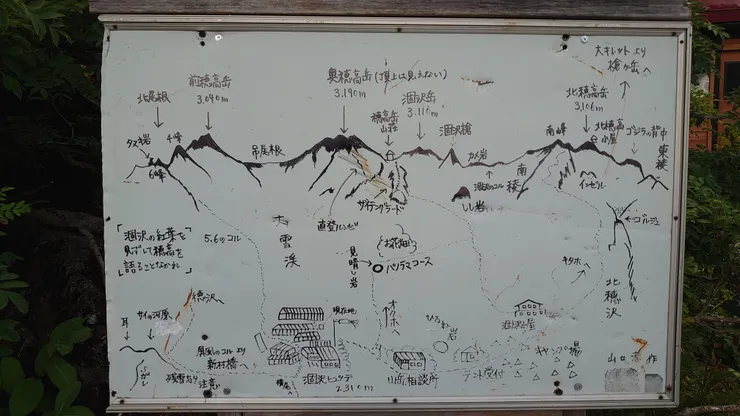 大キレットより
槍ヶ岳へ
奥穂高岳(頂上は見えない)
3.190m
前穂高岳
3.090m
北尾根
穂高岳
山荘
涸沢岳
3.110m
北穂高岳
3.106m
涸沢槍
南峰
北穂高
小屋
ゴジラの背中
東稜
タヌ岩
4峰
6峰
吊尾根
カメ岩
涸沢のコル
南
稜
インゼル
ザイテングラード
しし岩
直登ルンゼ
ゴルジュ
「涸沢の紅葉を
見ずして穂高を
語ることなかれ」
5.6のコル
大
雪
渓
お花畑
見
晴
し
岩
パノラマコース
キタホ
北
穂
沢
徳沢へ
サイの河原
耳
現在地
オクホ
ひるね
岩
涸沢小屋
屏風のコルより
新村橋へ
残雪あり
注意
横尾へ
涸沢ヒュッテ
2.310m
山岳相談所
テント受付
キャンプ場
山口
作